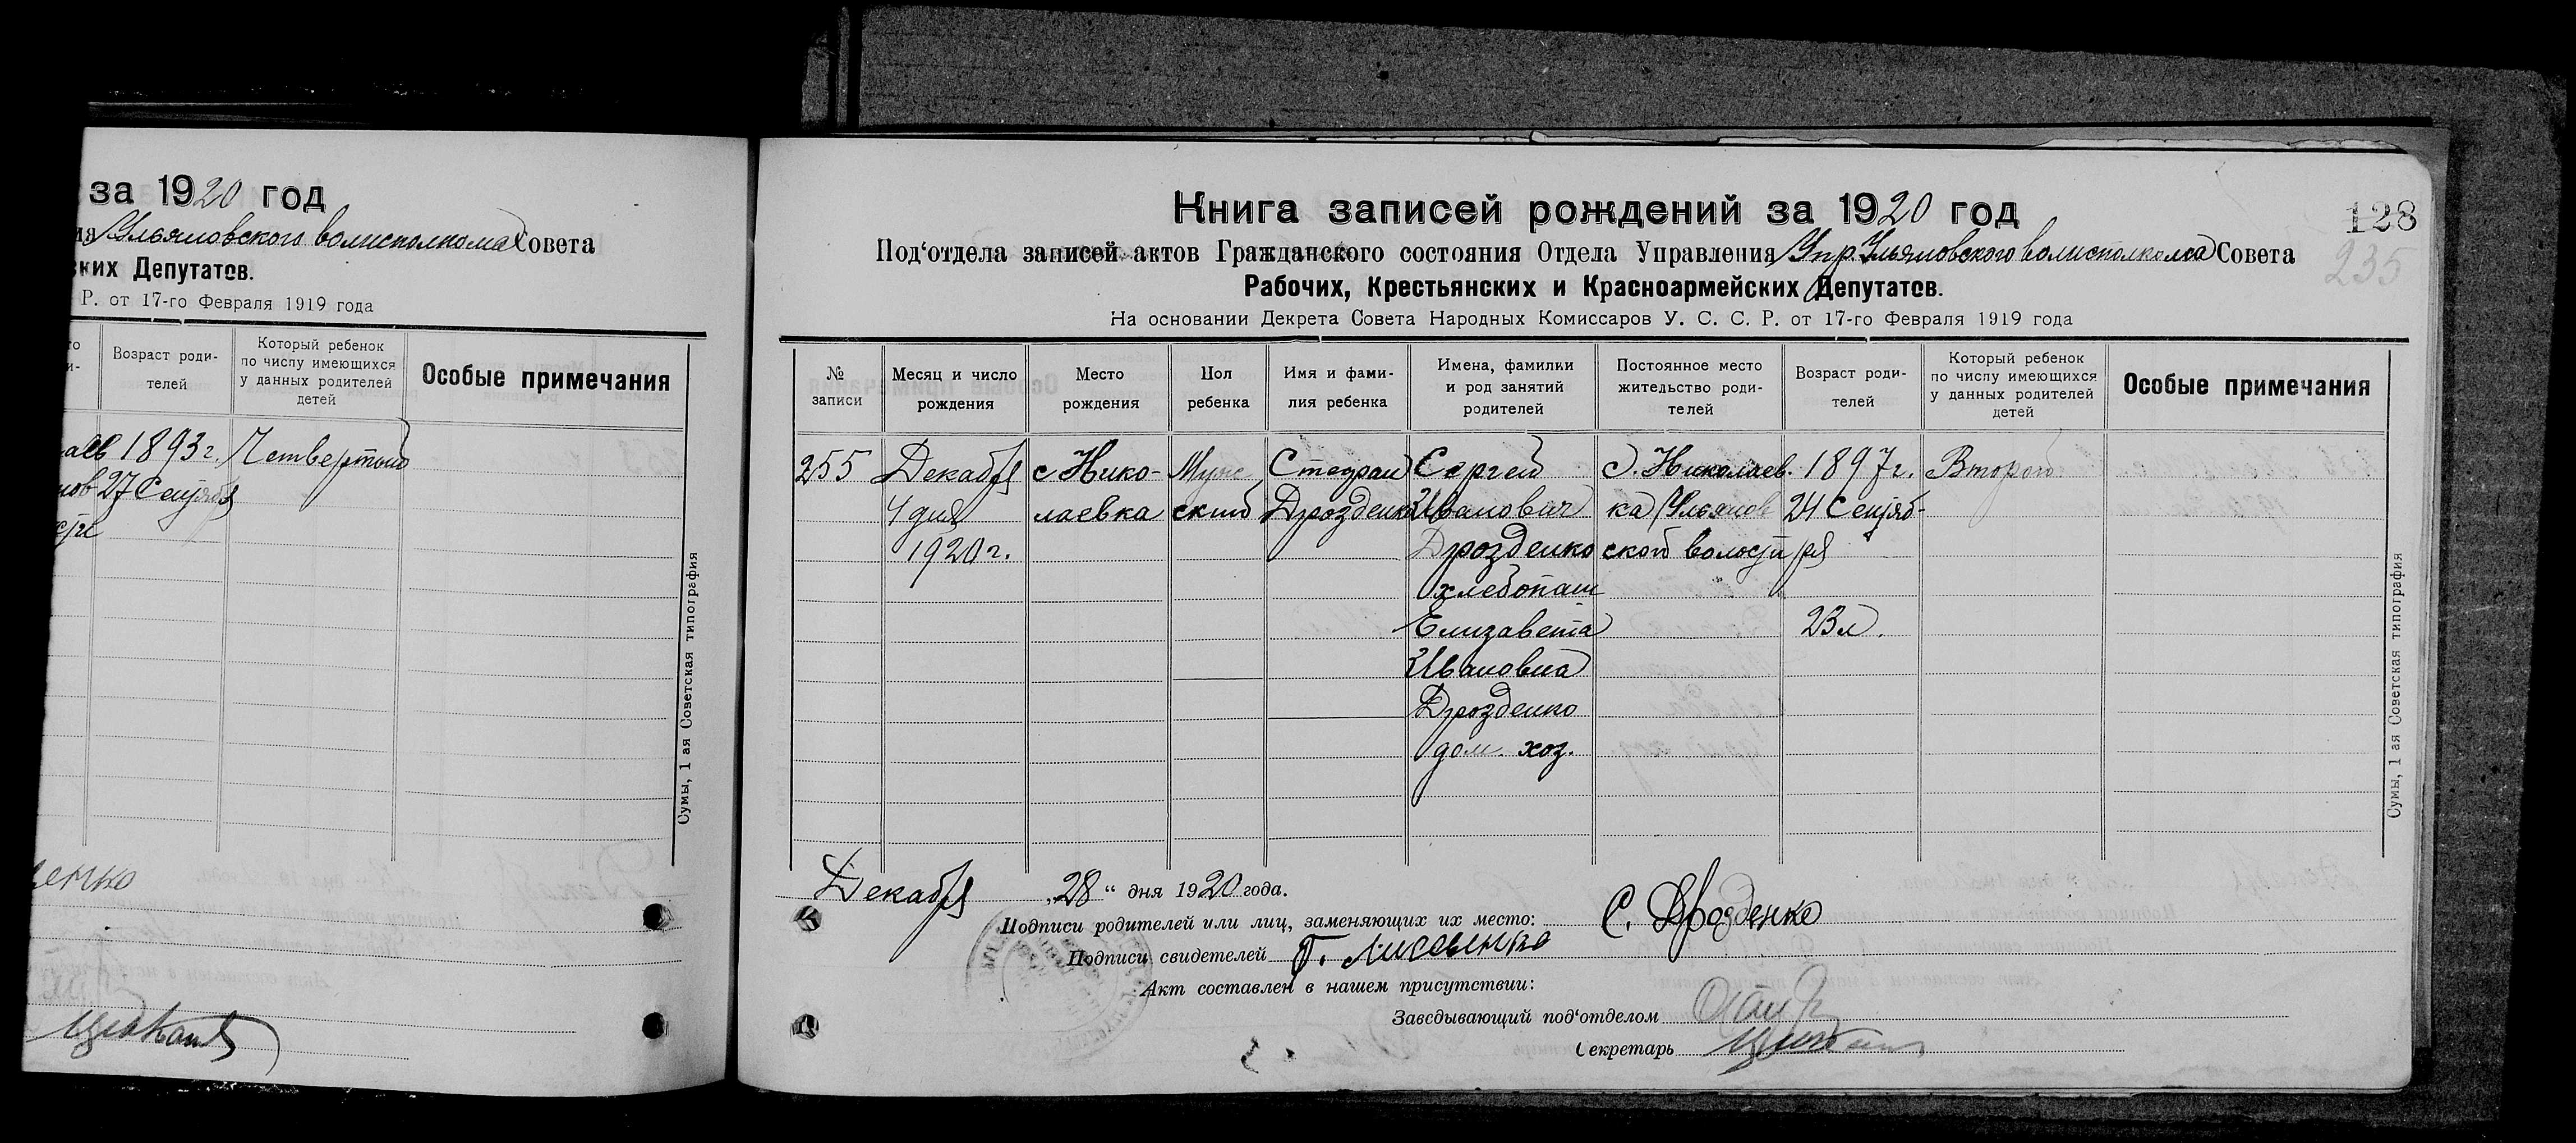 за 1920 год
Ульяновского волисполкома Совета
ских Депутатов.
Р. от 17-го Февраля 1919 года
Возраст роди-
телей
Который ребенок
по числу имеющихся
у данных родителей
детей
Особые примечания
1893 г.
27 Сентября
Четвертый
Сумы, 1 ая Советская типография
енко
Книга записей рождений за 1920 год
128
235
Под‘отдела записей актов Гражданского состояния Отдела Управления Упр. Ульяновского волисполкома Совета
Рабочих, Крестьянских и Красноармейских Депутатов.
На основании Декрета Совета Народных Комиссаров У. С. С. Р. от 17-го Февраля 1919 года
№
записи
Месяц и число
рождения
Место
рождения
Пол
ребенка
Имя и фами-
лия ребенка
Имена, фамилии
и род занятий
родителей
Постоянное место
жительство роди-
телей
Возраст роди-
телей
Который ребенок
по числу имеющихся
у данных родителей
детей
Особые примечания
255
Декабря
4 дня
1920 г.
с Нико-
лаевка
Муж
ский
Стефан
Дрозденко
Сергей
Иванович
Дрозденко
хлебопаш
Елизавета
Ивановна
Дрозденко
дом. хоз.
с. Николаев.
ка Ульянов
ской волости
1897 г.
24 Сентяб-
ря
23 л.
Второй
Сумы, 1 ая Советская типография
Декабря „28“ дня 1920 года.
Подписи родителей или лиц, заменяющих их место: С. Дрозденко
Подписи свидетелей
Акт составлен в нашем присутствии:
Заведывающий под‘отделом
Секретарь